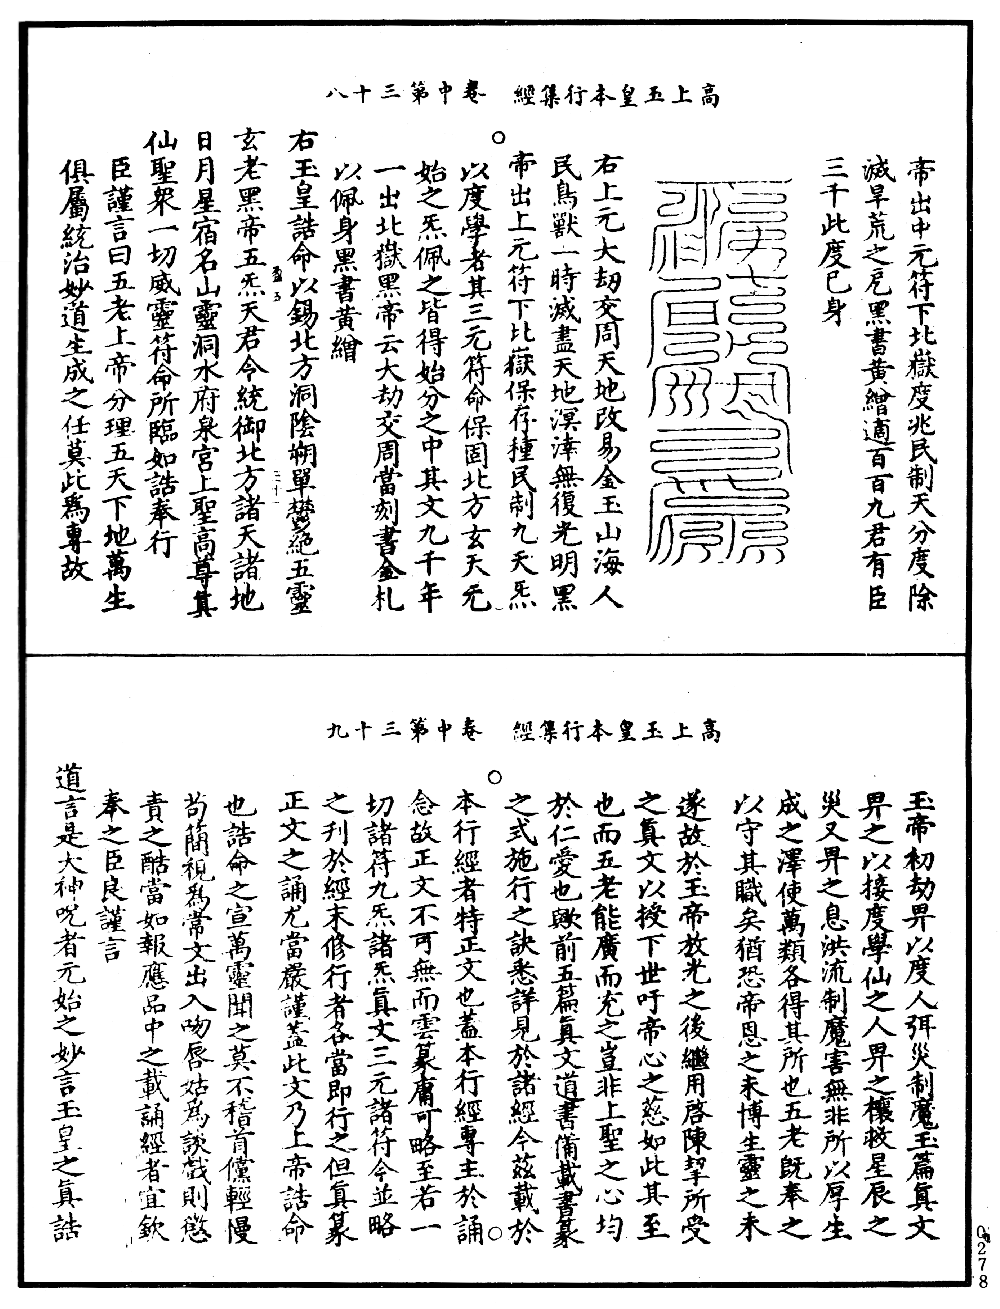 高上玉皇本行集經　卷中第三十八
帝出中元符下北嶽度兆民制天分度除
滅旱荒之戹黑書黃繒適百百九君有臣
三千此度已身
右上元大劫交周天地改易金玉山海人
民鳥獸一時滅盡天地溟涬無復光明黑
帝出上元符下北嶽保存種民制九天炁
以度學者其三元符命保固北方玄天元
始之炁佩之皆得始分之中其文九千年
一出北嶽黑帝云大劫交周當刻書金札
以佩身黑書黃繒
右玉皇誥命以錫北方洞陰朔單鬱絕五靈
玄老黑帝五炁天君令統御北方諸天諸地
日月星宿名山靈洞水府泉宮上聖高尊其
仙聖眾一切威靈符命所臨如誥奉行
臣謹言曰五老上帝分理五天下地萬生
俱屬統治妙道生成之任莫此為專故
高上玉皇本行集經　卷中第三十九
玉帝初劫畀以度人弭災制魔玉篇真文
畀之以接度學仙之人畀之禳救星辰之
災又畀之息洪流制魔害無非所以厚生
成之澤使萬類各得其所也五老既奉之
以守其職矣猶恐帝恩之未博生靈之未
遂故於玉帝放光之後繼用啓陳挈所受
之真文以授下世吁帝心之慈如此其至
也而五老能廣而充之豈非上聖之心均
於仁愛也歟前五篇真文道書備載書篆
之式施行之訣悉詳見於諸經今茲載於
本行經者特正文也蓋本行經專主於誦
念故正文不可無而雲篆庸可略至若一
切諸符九炁諸炁真文三元諸符今並略
之刊於經末修行者各當即行之但真篆
正文之誦尤當嚴謹蓋此文乃上帝誥命
也誥命之宣萬靈聞之莫不稽首儻輕慢
苟簡視為常文出入吻唇姑為談戲則愆
責之酷當如報應品中之載誦經者宜欽
奉之臣良謹言
道言是大神呪者元始之妙言玉皇之真誥
0278